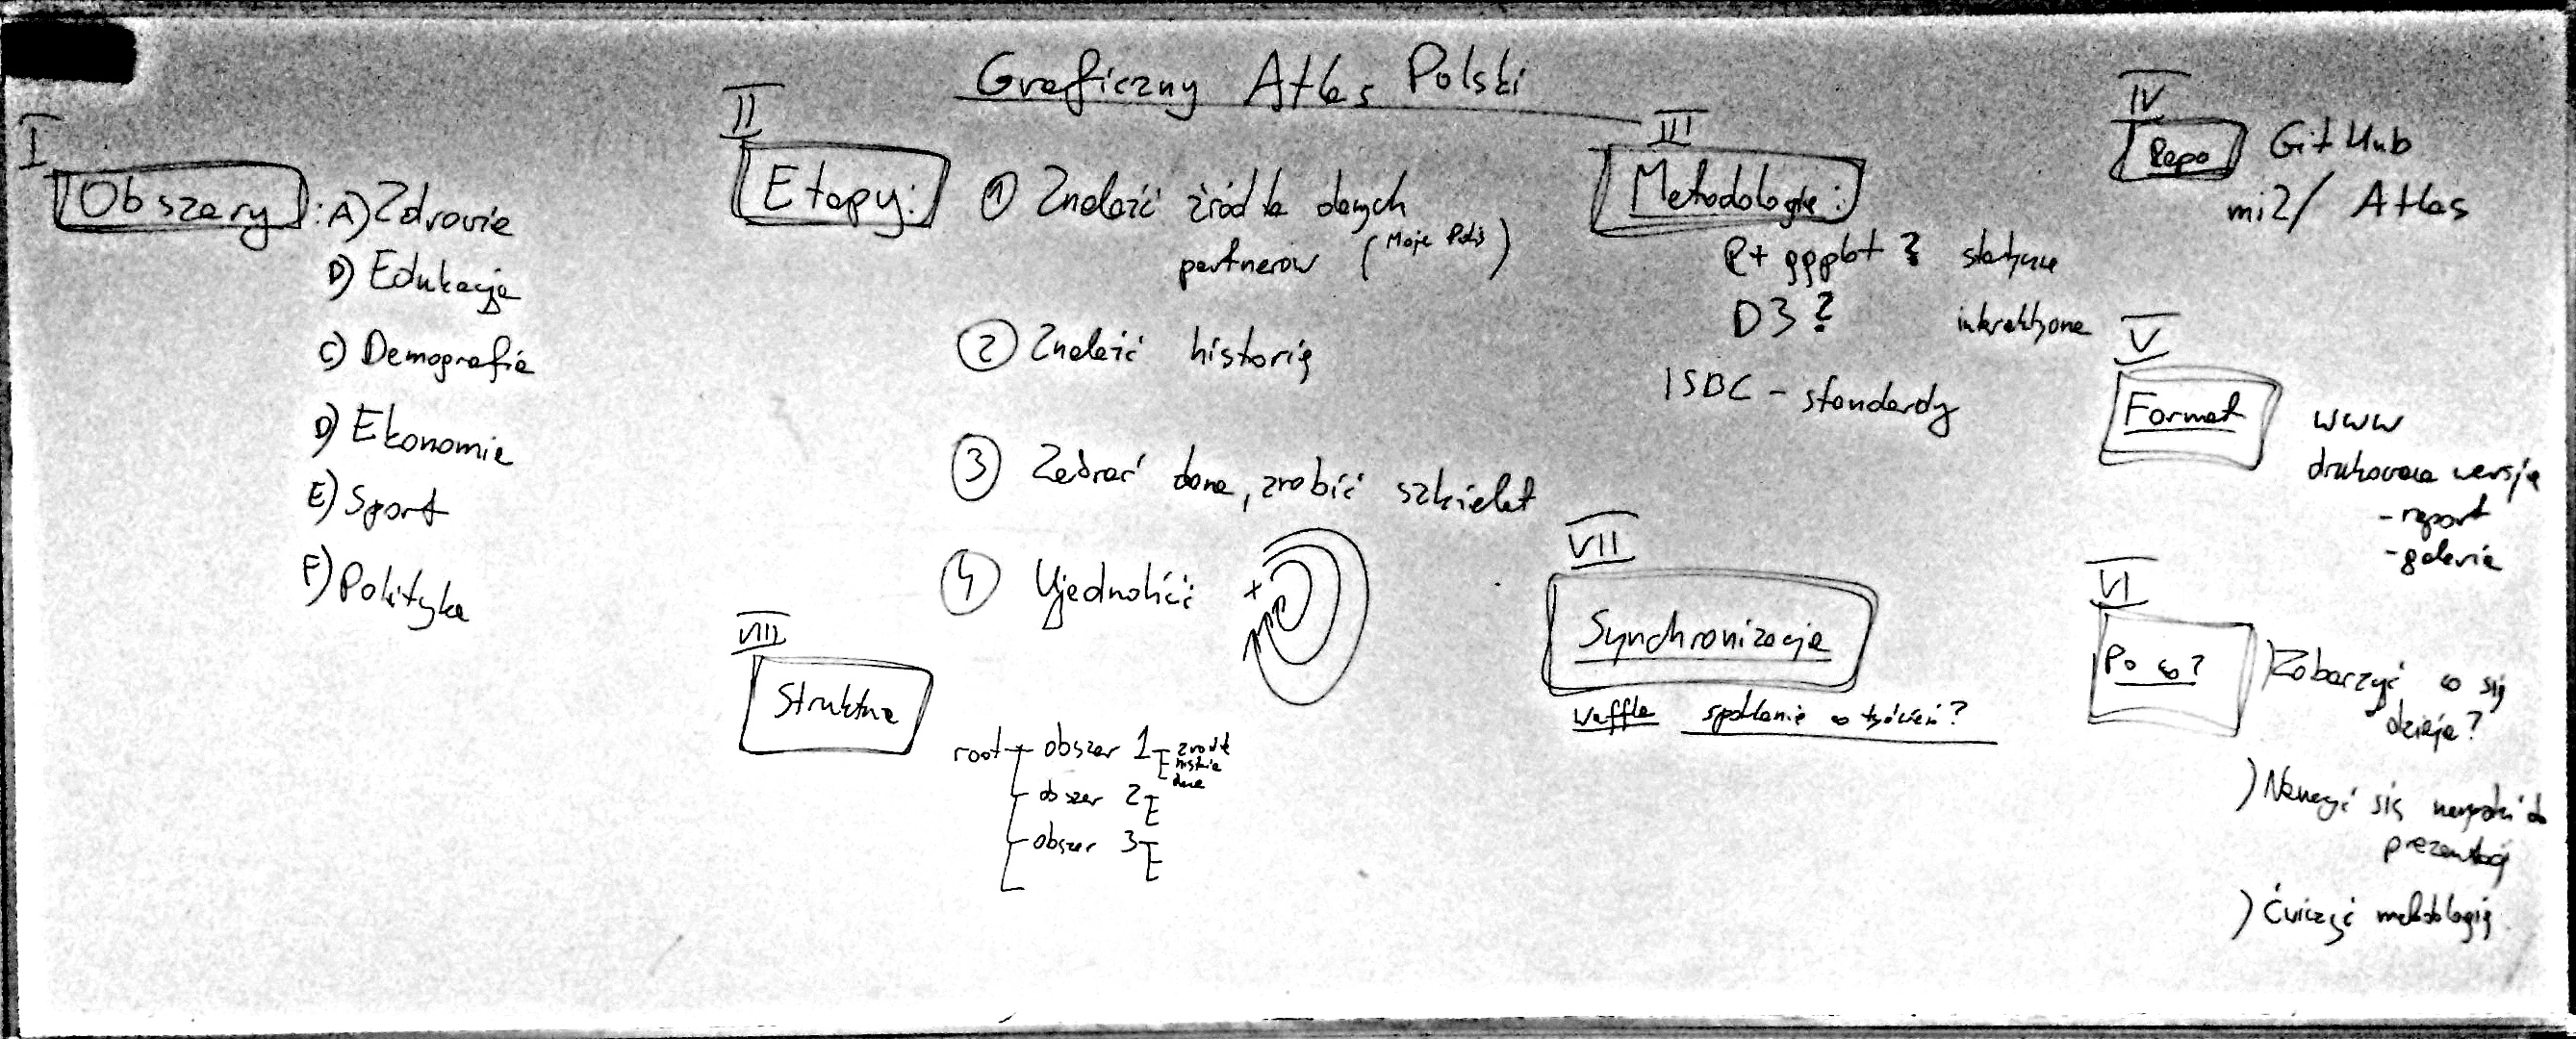 Graficzny Atlas Polski
I
Obszary: A) Zdrowie
B) Edukacja
C) Demografia
D) Ekonomia
E) Sport
F) Polityka
II
Etapy:
1 Znaleźć źródła danych
partnerów (Moje Państ)
2 Znaleźć historię
3 Zebrać dane, zrobić szkielet
4 Ujednolicić
III
Metodologia:
R + ggplot ? statyczne
D3 ? interaktywne
ISBC - standardy
IV
Repo GitHub
mi2/ Atlas
V
Format
www
drukowana wersja
- raport
- galeria
VI
Po co?
) Zobaczyć co się
dzieje?
) Nauczyć się narzędzi do
prezentacji
) Ćwiczyć metodologię
VII
Synchronizacja
waffle spotkanie co tydzień?
VIII
Struktura
root obszar 1 źródła
historia
dane
obszar 2
obszar 3